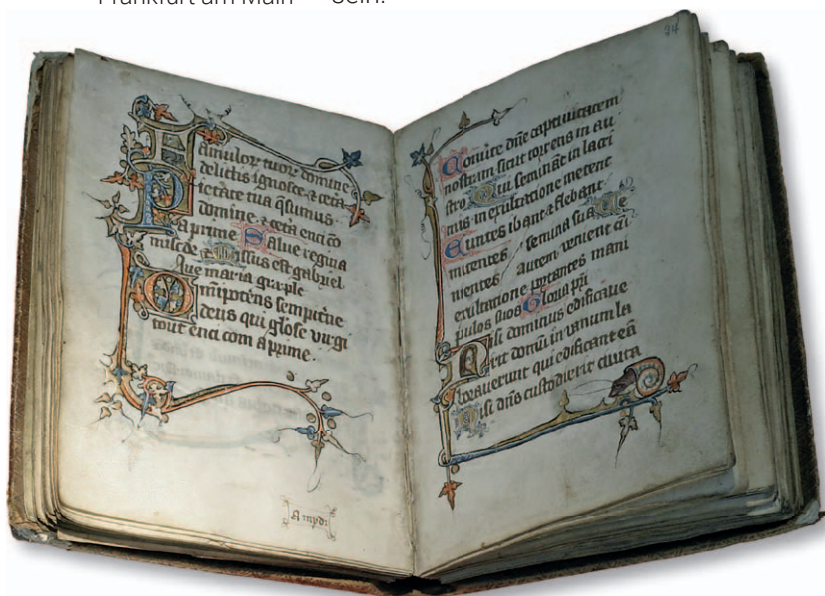 Frankfurt am Main sein.
Famulor tuor domine
delictis ignosce. & cetã
Pietate tua qsumus
domine. & cetã enci cõ
a prime Salue regina
Missus est gabriel
Aue maria gra ple
Omipotens sempitne
deus qui gliose virgi
tout enci com a prime.
A mydi
34
dñe captiuitatem
nostram sicut torrens in au
stro Qui seminãt in lacri
mis in exultatione metent
Euntes ibant & flebant
mittentes semina sua Ue
nientes autem venient cũ
exultatione portantes mani
pulos suos Gloria pri
Nisi dominus edificaue
rit domũ in vanum la
borauerunt qui edificant eã
Nisi dñs custodierit ciuita